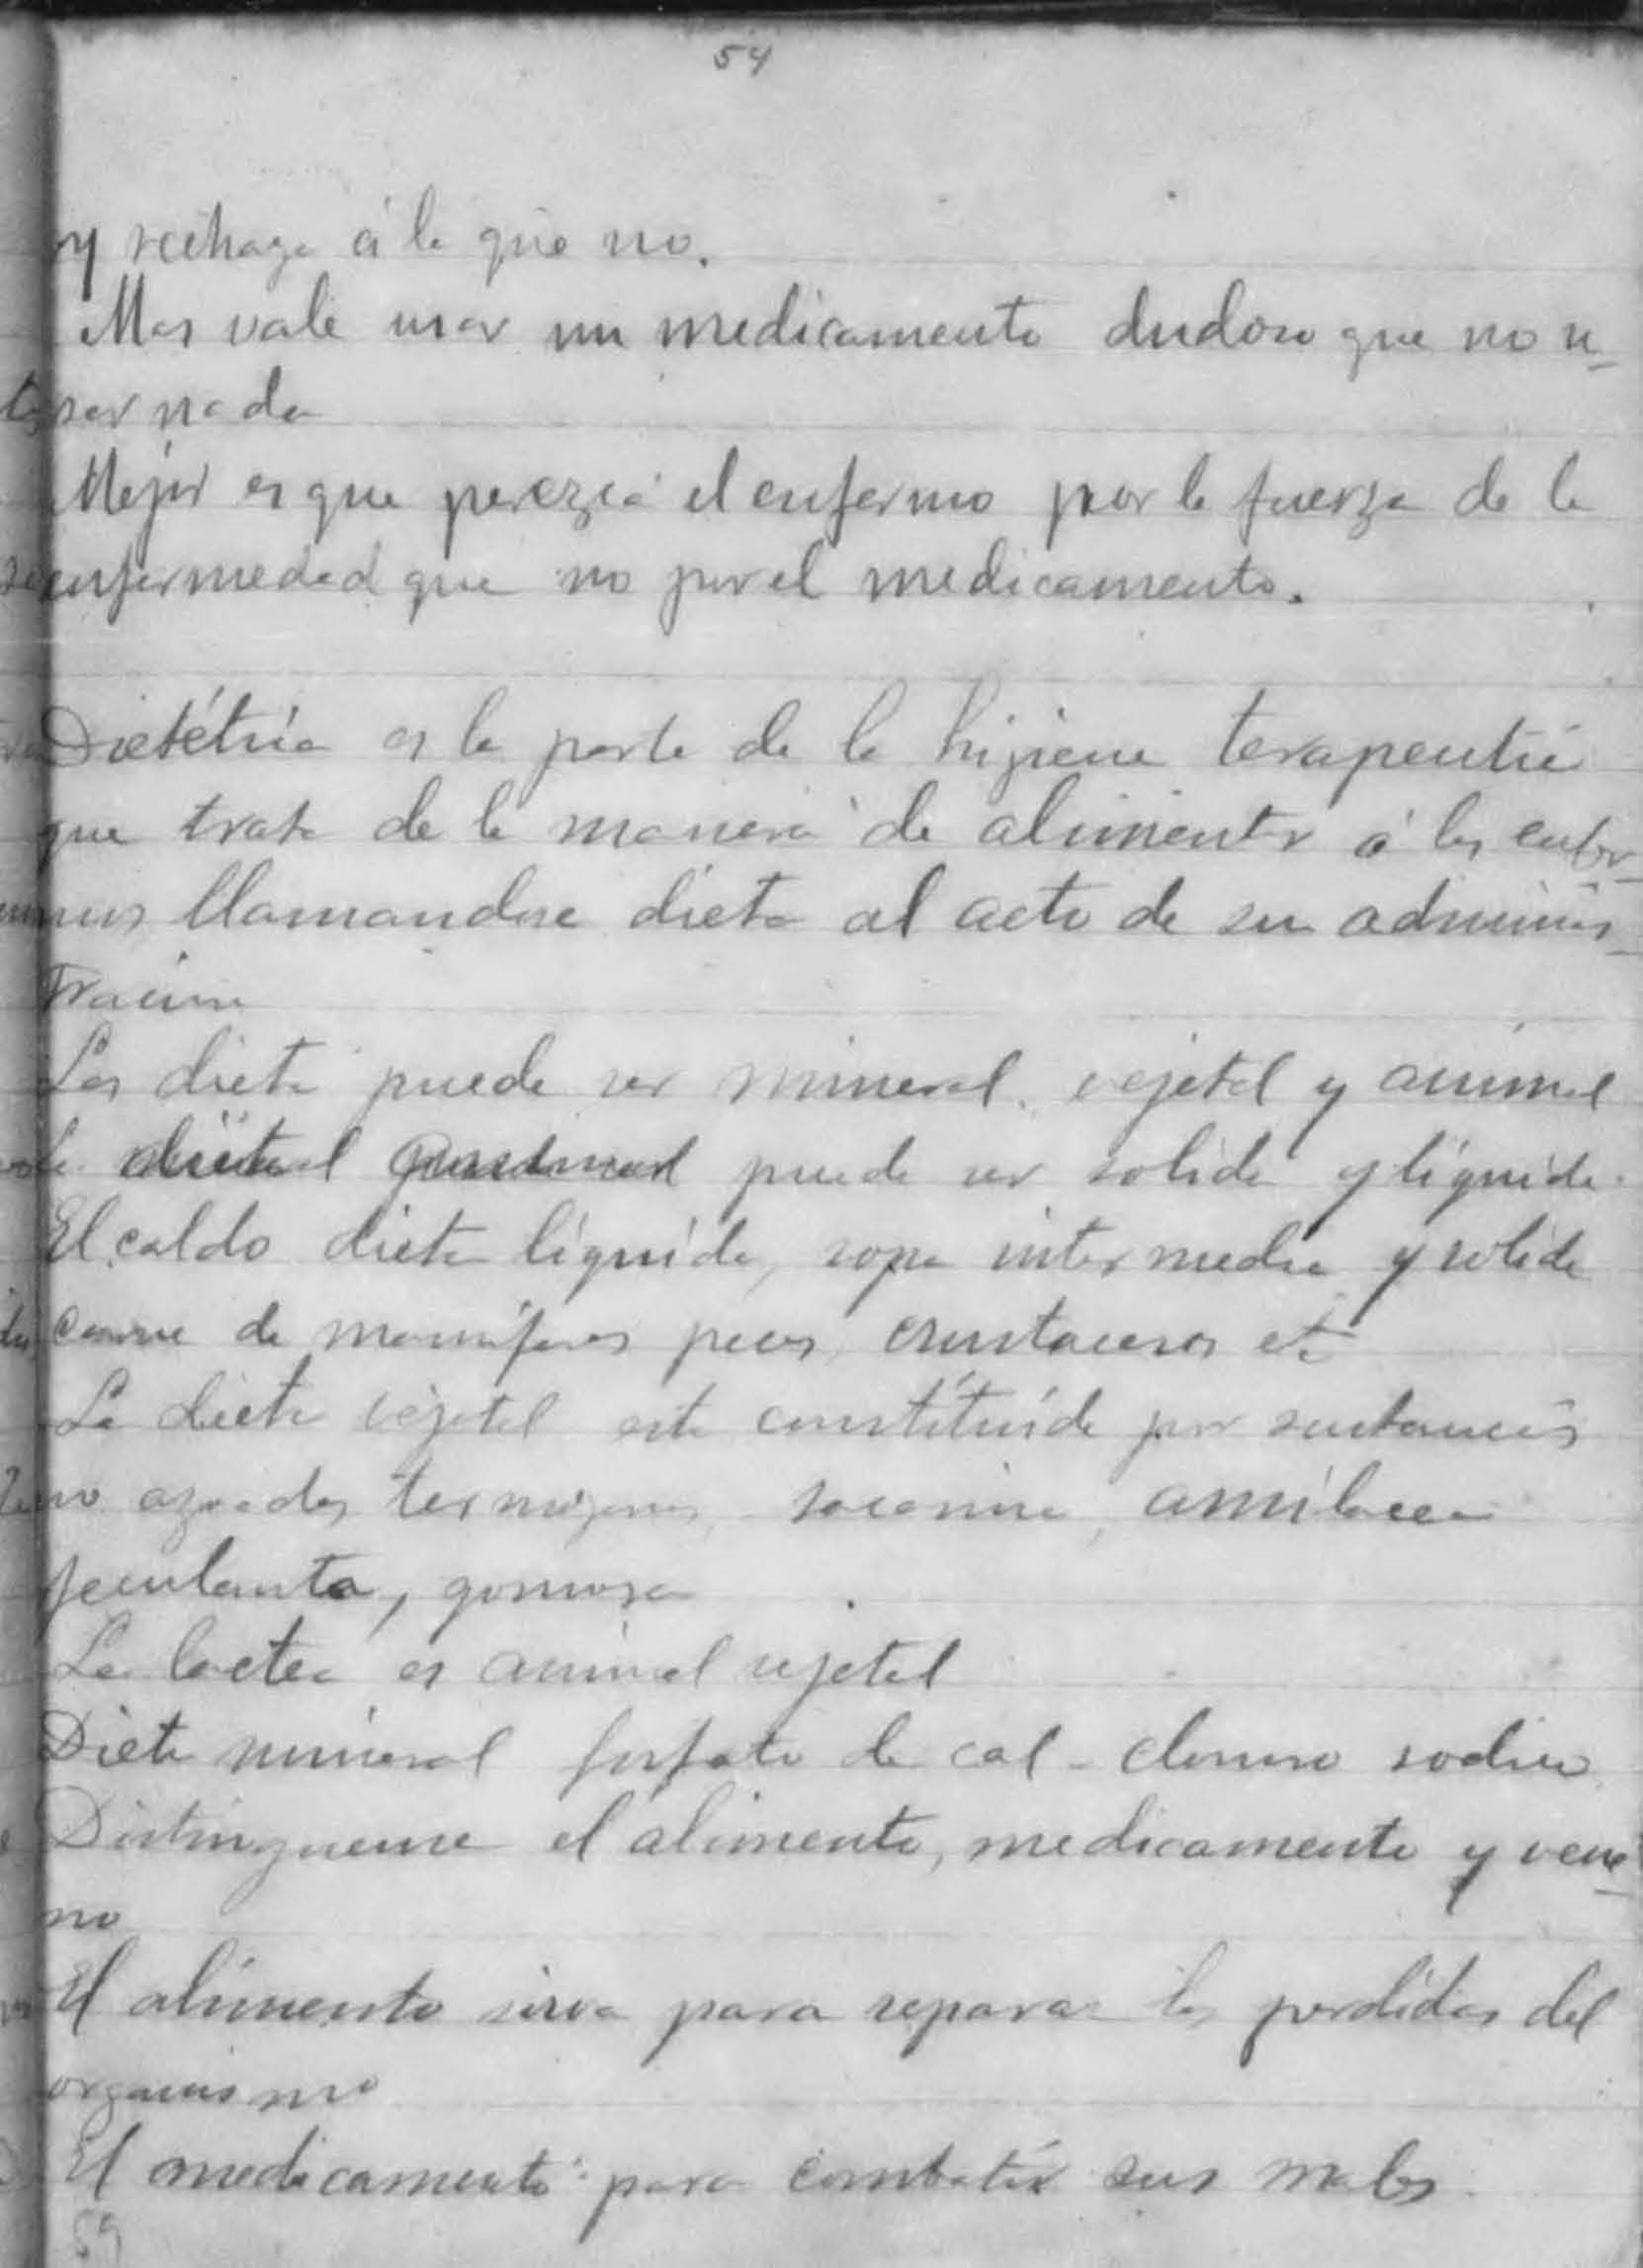 54
y rechaza á la que no.
Mas vale usar un medicamento dudoso que no u-
sar nada
Mejor es que perezca el enfermo por la fuerza de la
enfermedad que no por el medicamento.
Dietética es la parte de la higiene terapeutica
que trata de la manera de alimentar á los enfer-
mos llamandose dieta al acto de su adminis-
tracion
La dieta puede ser mineral, vejetal y animal
La animal puede ser solida y líquida.
El caldo dieta líquida, sopa intermedia y solida
carne de mamiferos peces, crustaceos etc
La dieta vejetal está constituida por sustancias
no azoadas termogenas, sacarina, amilacea
feculenta, gomosa
La lactea es animal vejetal
Dieta mineral fosfato de cal - cloruro sodico
Distinguense el alimento, medicamento y vene-
no
El alimento sirve para reparar las perdidas del
organismo
El medicamento para combatir sus males
59